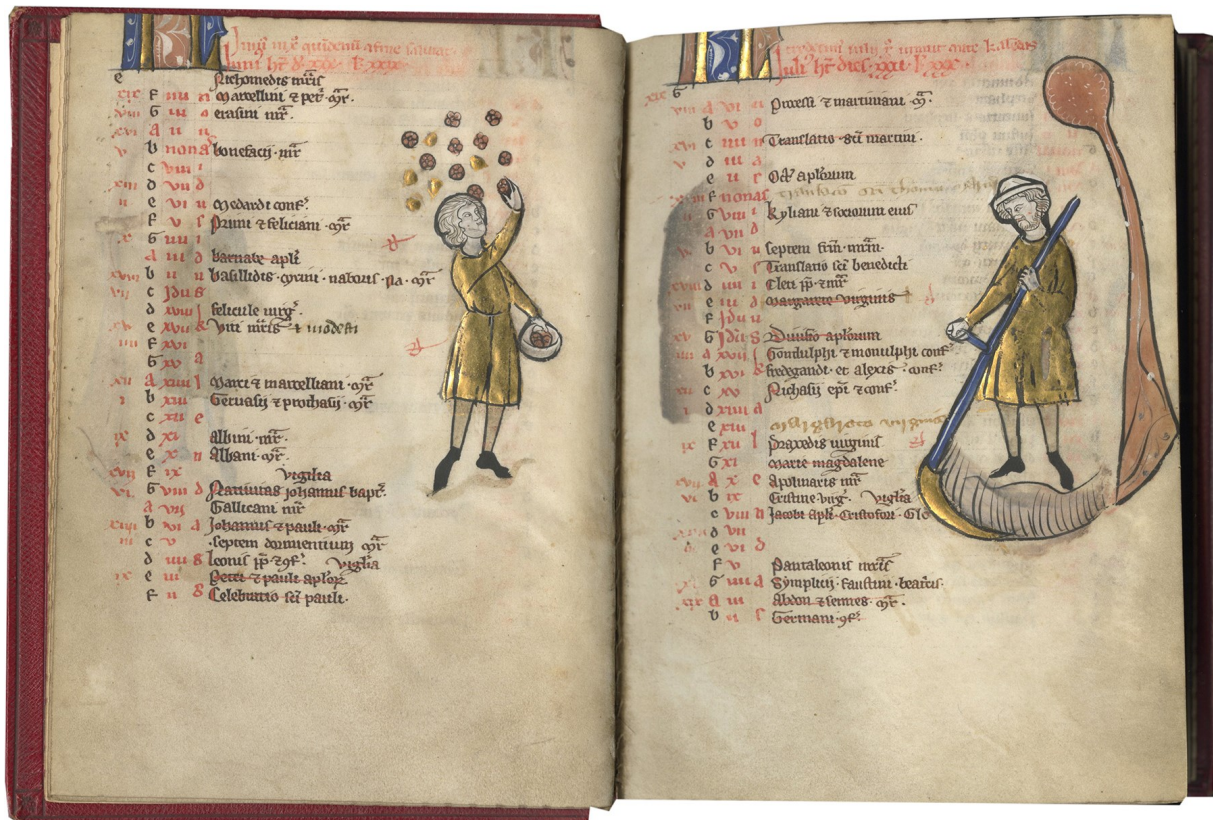 e Nichomedis mr̄is
xix F iiii n Marcellini ⁊ pet̄ mr̄
viii G iii o erasmi mr̄
xvi A ii n
v b nonas bonefacij mr̄
c viii i
xiii d vii d
ii e vi u Medardi conf
F v s Primi ⁊ feliciani mr̄
x G iiii i
A iii d barnabe apl̄i
xviii b ii u basillidis cyrini naboris mr̄
vii c Jdus
d xviii l felicule uirg
xv e xvii k viti mr̄is ⁊ modesti
iiii F xvi
G xv a
xii A xiiii l Marci ⁊ marcelliani mr̄
i b xiii Geruasij ⁊ prothasij mr̄
c xii e
ix d xi Albini mr̄
e x n Albani mr̄
xvii F ix vigilia
vi G viii d Natiuitas johannis bapt
A vii Gallicani mr̄
xiiii b vi a Johannis ⁊ pauli mr̄
iii c v septem dormientium mr̄
d iiii s leonis pp̄ ⁊ 9f vigilia
xi e iii Petri ⁊ pauli apl̄or
F ii s Celebratio sc̄i pauli
xix G
viii A vi n Processi ⁊ martiniani mr̄
b v o
xvi c iiii n Translatio sc̄i martini
v d iii a
e ii s Oct̄ apl̄orum
xiii F nonas translacio sc̄i thome
ii G viii i kyliani ⁊ sociorum eius
A vii d
x b vi u septem fr̄m mr̄m
c v s Translatio sc̄i benedicti
xviii d iiii i Cleti pp̄ ⁊ mr̄
vii e iii d Margarete uirginis
F ii u
xv G Jdus Diuisio apl̄orum
iiii A xvii l Gondulphi ⁊ monulphi conf
b xvi k fredegandi et alexis conf
xii c xv Nichasij ep̄i ⁊ conf
i d xiiii a
e xiii Margareta virginis
ix F xii l praxedis uirginis
G xi Marie magdalene
xvii A x e Apolinaris mr̄
vi b ix Cristine virg vigilia
c viii d Jacobi apl̄i Cristofori
xiiii d vii
iii e vi d
F v Pantaleonis mr̄is
xi G iiii a Symplicij faustini beatris
xix A iii Abdon ⁊ sennes mr̄
b ii s Germani 9f